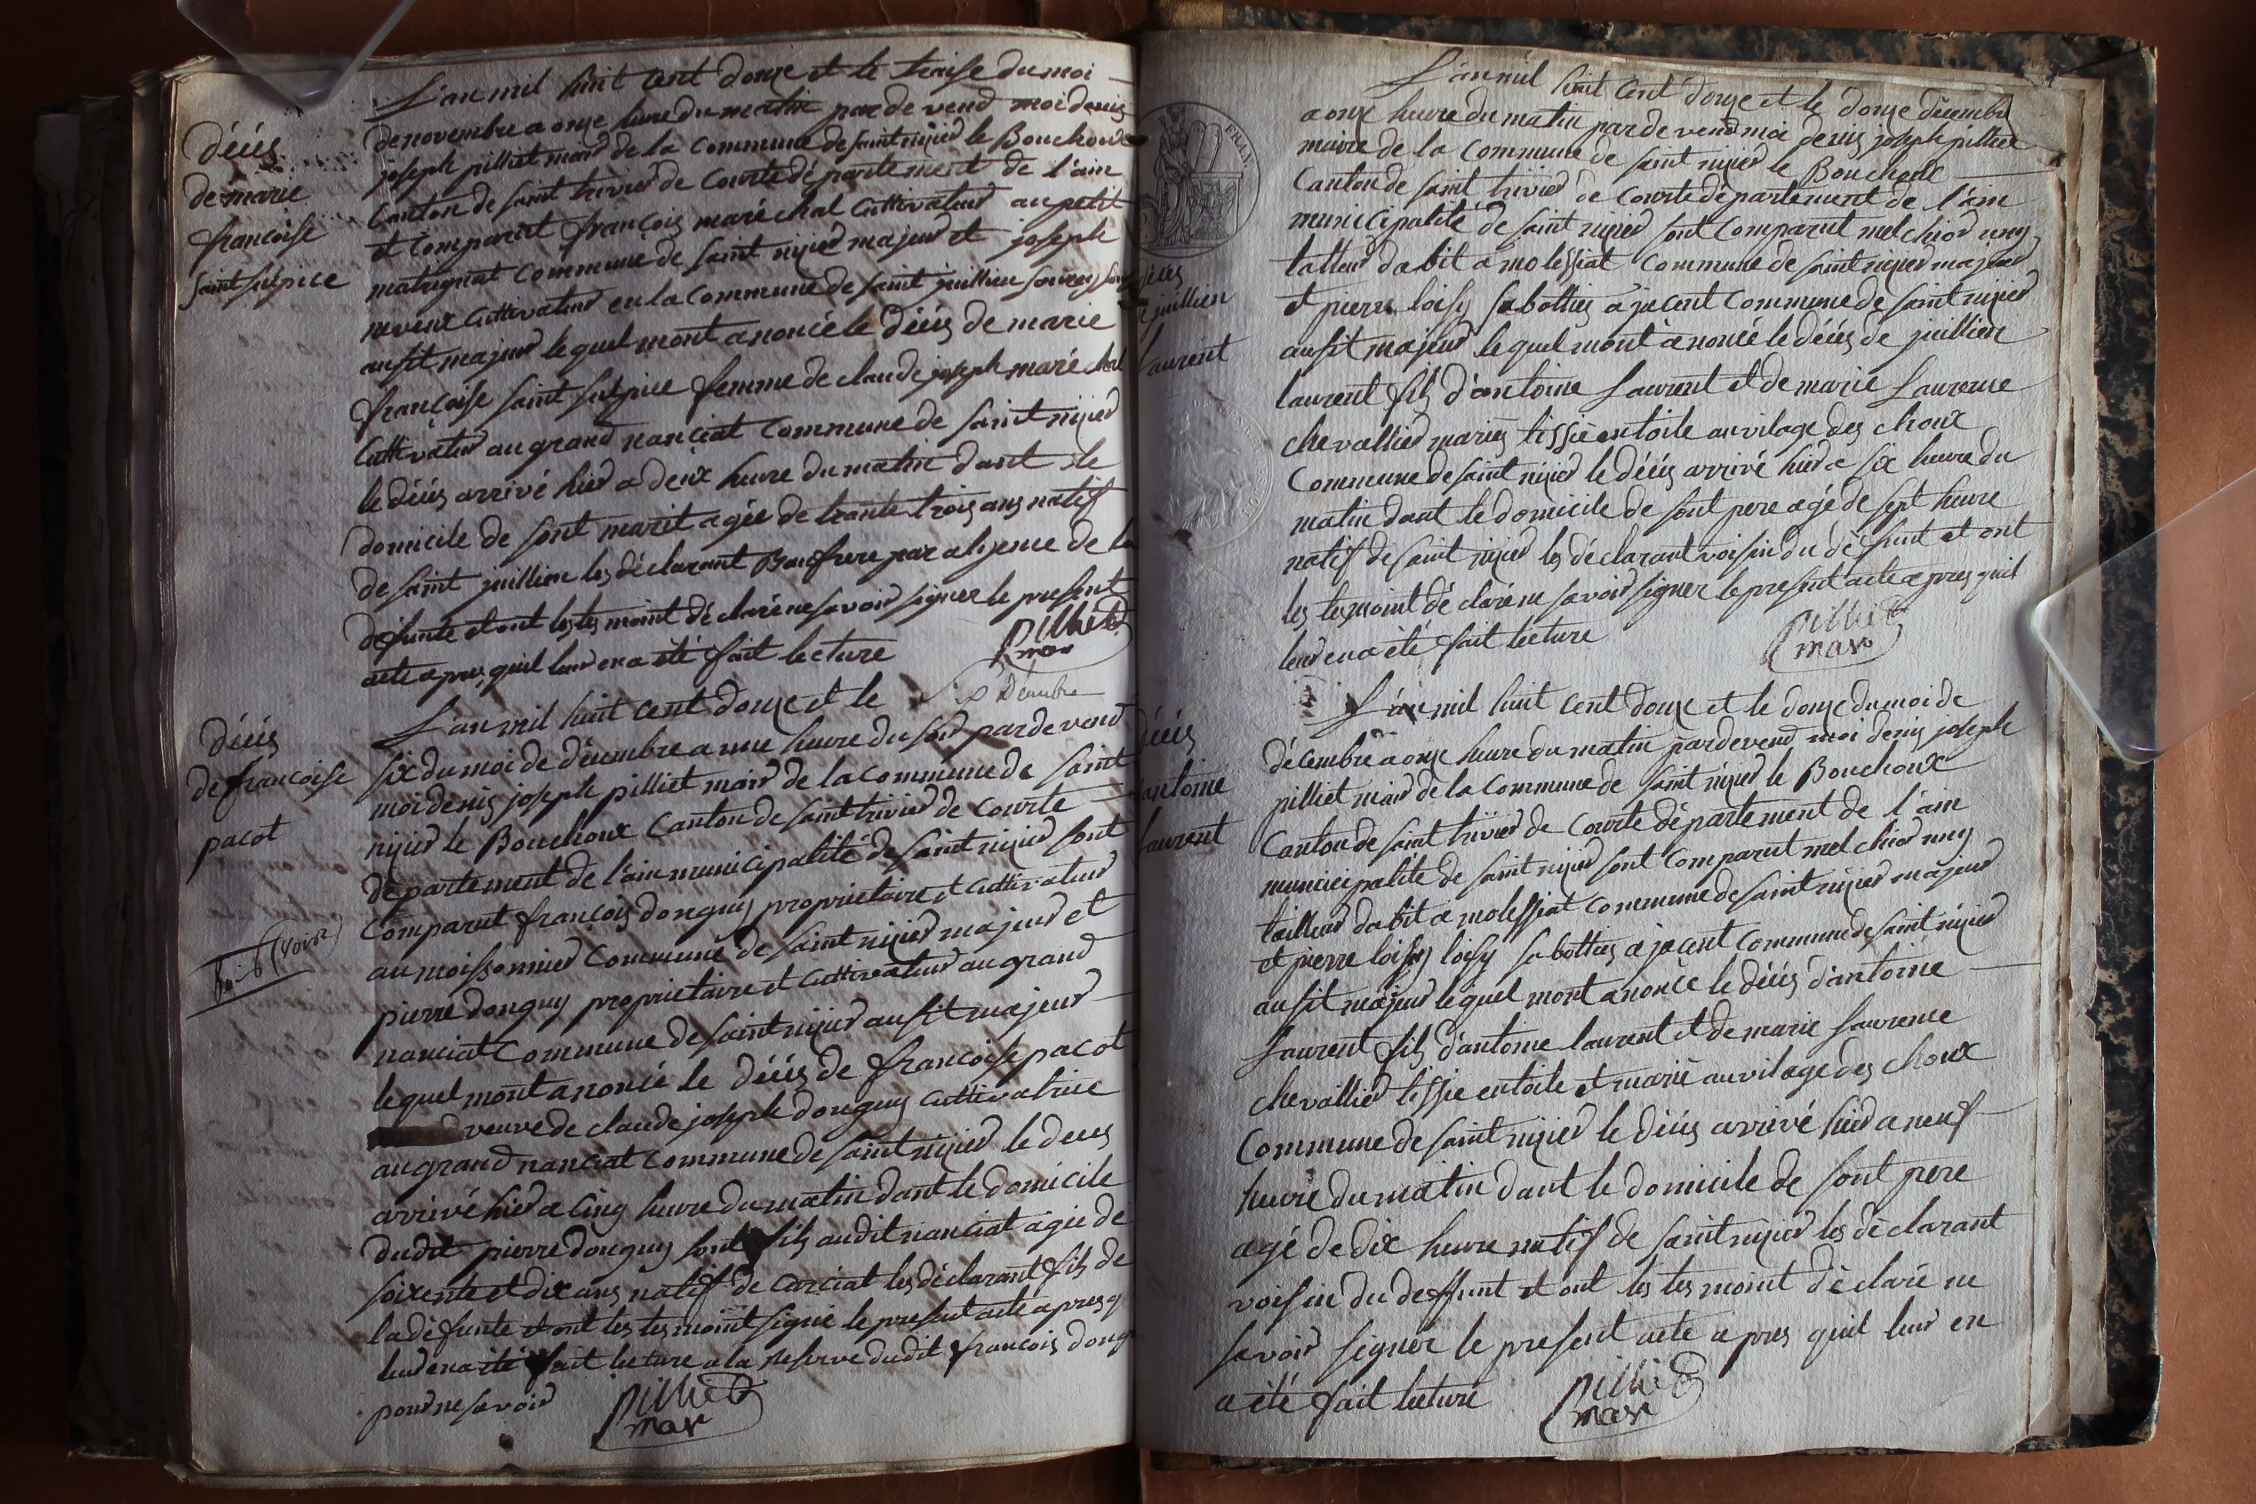 L'an mil huit cent douze et le traise du moi
de novembre a onze heure du matin par de vend moi denis
joseph pilliet mair de la commune de saint nizier le Bouchoux
Canton de saint trivier de Courte département de l'ain
et comparut françois maréchal Cuttivateur au petit
matignat commune de saint nizier majeur et joseph
reveux Cuttivateur en la commune de saint juillien
ausit majeur le quel mont anoncé le décès de marie
françoise saint sulpice femme de claude joseph maréchal
Cuttivateur au grand nanciat commune de saint nizier
le décès arrivé hier a deux heure du matin dant le
domicile de sont marit agée de trante trois ans natif
de saint juillien les déclarant Bau frere par aliance de la
défunte et ont les tes moint déclaré ne savoir signer le present
acte apres quil leur en a été fait lecture
Pilliet
mar
décès
de marie
françoise
saint sulpice
L'an mil huit cent douze et le six Décembre
six du moi de décembre a une heure du soir par de vend
moi denis joseph pilliet mair de la commune de saint
nizier le Bouchoux Canton de saint trivier de Courte
département de l'ain municipalité de saint nizier sont
Comparut françois donguy proprietaire et Cuttivateur
au moissonnier commune de saint nizier majeur et
pierre donguy proprietaire et Cuttivateur au grand
nanciat commune de saint nizier ausit majeur
le quel mont anoncé le décès de françoise pacot
veuve de claude joseph donguy cuttivatrice
au grand nanciat commune de saint nizier le deces
arrivé hier a cinq heure du matin dant le domicile
du dit pierre donguy sont fils au dit nanciat agée de
soixente et dix ans natif de Carciat les déclarant fils de
la défunte et ont les tes moint signé le present acte apres q
leur en a été fait lecture a la reserve du dit françois dong
pour ne savoir
Pilliet
mar
décès
de françoise
pacot
(Voir)
L'an mil huit cent douze et le douze décembre
a onze heure du matin par de vend moi denis joseph pilliet
maire de la commune de saint nizier le Bouchoux
Canton de saint trivier de Courte département de l'ain
municipalité de saint nizier sont Comparut melchior uny
tallieur dabit a molessiat commune de saint nizier majeur
et pierre loisy sabottiés a jacent commune de saint nizier
ausit majeur le quel mont anoncé le décès de juillien
laurent fils d'antoine laurent et de marie laurence
chevallier mariés tissié en toile au vilage des choux
Commune de saint nizier le décès arrivé hier a six heure du
matin dant le domicile de sont pere agé de sept heure
natif de saint nizier les déclarant voisin du défunt et ont
les tes moint déclaré ne savoir signer le present acte apres quil
leur en a été fait lecture
Pilliet
mar
FRAN
décès
juillien
laurent
L'an mil huit cent douze et le douze du moi de
décembre a onze heure du matin par de vend moi denis joseph
pilliet mair de la commune de saint nizier le Bouchoux
Canton de saint trivier de Courte département de l'ain
municipalité de saint nizier sont Comparut melchior uny
tailleur dabit a molessiat commune de saint nizier majeur
et pierre loisy loisy sabottiés a jacent commune de saint nizier
ausit majeur le quel mont anoncé le décès d'antoine
laurent fils d'antoine laurent et de marie laurence
chevallier tissié en toile et marié au vilage des choux
Commune de saint nizier le décès arrivé hier a neuf
heure du matin dant le domicile de sont pere
agé de dix heure natif de saint nizier les déclarant
voisin du deffunt et ont les tes moint déclaré ne
savoir signer le present acte apres quil leur en
a été fait lecture
Pilliet
mar
décès
antoine
laurent